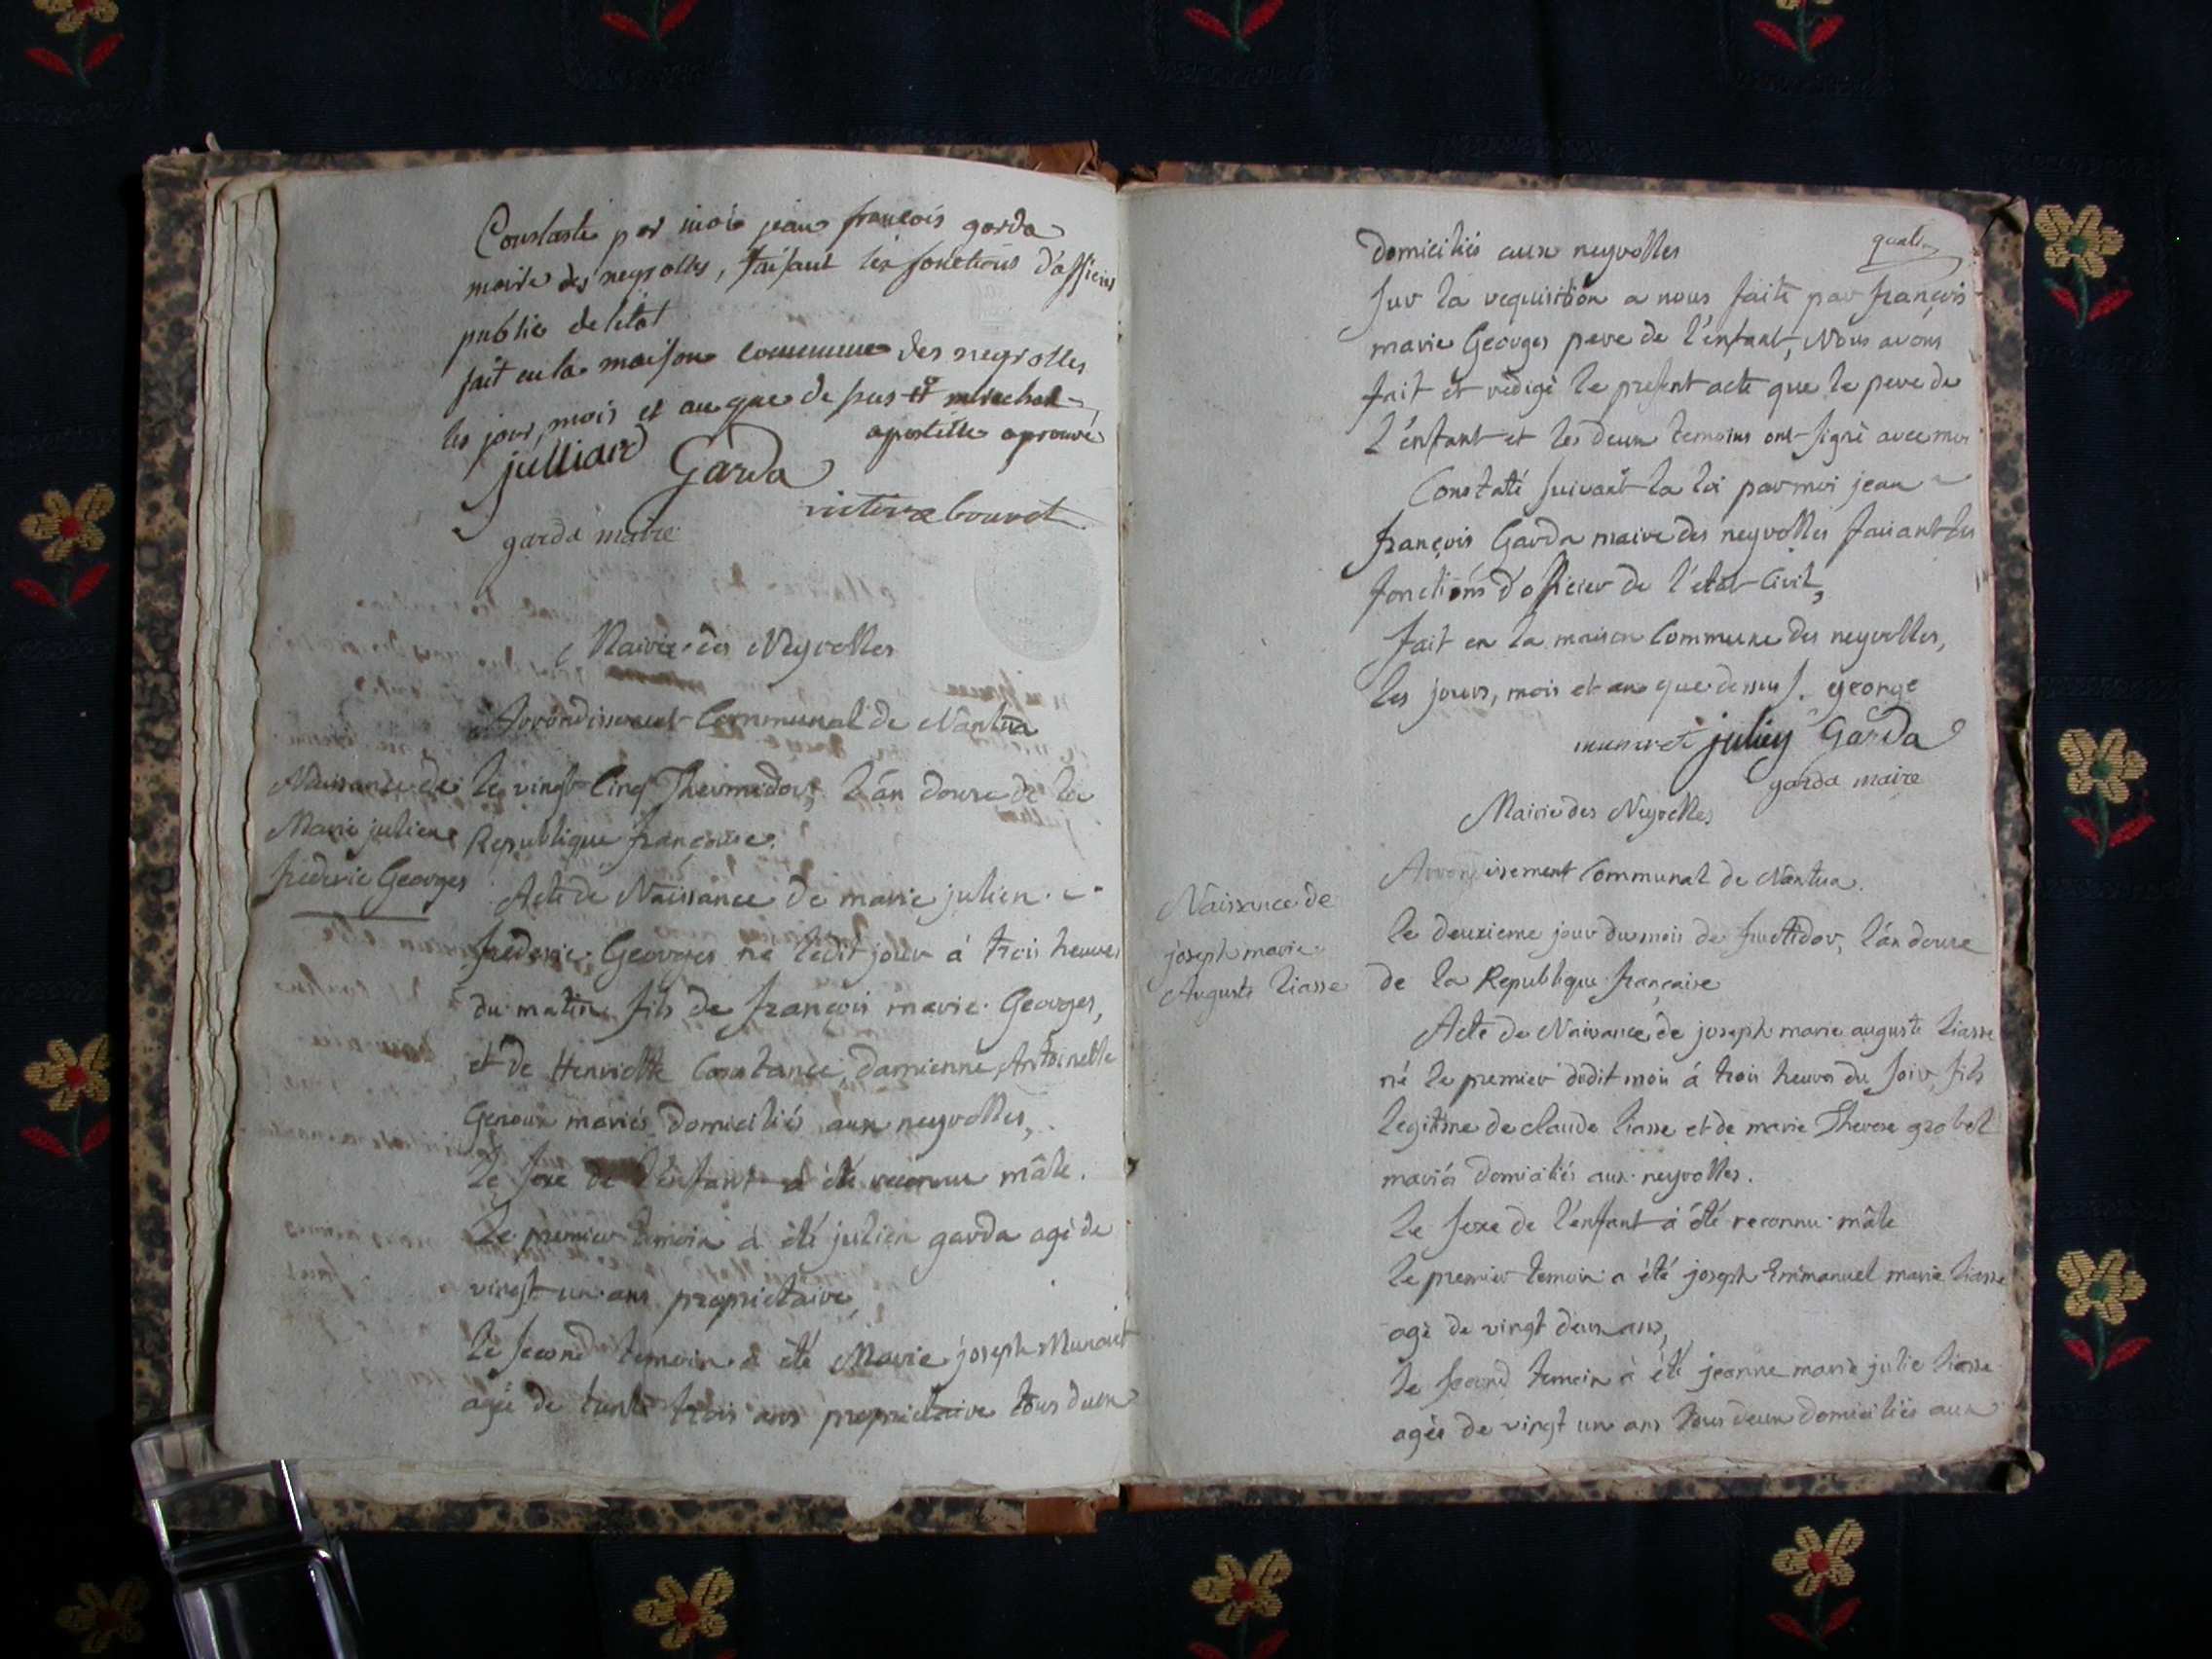 Constaté par moi jean françois garda
maire des neyrolles, faisant les fonctions d'officier
public de letat
fait en la maison commune des neyrolles
les jour, mois et an que de sus
apostille aprouvé
julliard Garda
victoire bouvet
garda maire
Mairie des Neyrolles
Arrondissement Communal de Nantua
Naissance de
Marie julien
frederic Georges
le vingt Cinq Thermidor, l'an douze de la
Republique française.
Acte de Naissance de marie julien
frederic Georges né ledit jour à trois heures
du matin fils de françois marie Georges,
et de Henriette Constance, damienne, Antoinette
Genoux mariés domiciliés aux neyrolles,
le sexe de l'enfant a été reconnu mâle.
le premier temoin à été julien garda agé de
vingt un ans propriétaire,
le second temoin à été Marie joseph Munaret
agé de trente trois ans proprietaire tous deux
quatre
domiciliés aux neyrolles
sur la requisition a nous faite par françois
marie Georges pere de l'enfant, Nous avons
fait et rédigé le present acte que le pere de
l'enfant et les deux temoins ont signé avec moi
Constaté suivant la loi par moi jean
françois Garda maire des neyrolles faisant les
fonctions d'officier de l'état Civil,
fait en la maison Commune des neyrolles,
les jours, mois et an que dessus. george
munaret julien Garda
garda maire
Mairie des Neyrolles
Arrondissement Communal de Nantua.
Naissance de
joseph marie
Auguste liasse
le deuxieme jour du mois de fructidor, l'an douze
de la Republique française
Acte de Naissance de joseph marie auguste liasse
né le premier dudit mois à trois heures du soir, fils
legitime de claude liasse et de marie Therese grobel
mariés domiciliés aux neyrolles.
le sexe de l'enfant à été reconnu mâle
le premier temoin a été joseph Emmanuel marie liasse
agé de vingt deux ans,
le second temoin à été jeanne marie julie liasse
agée de vingt un ans tous deux domiciliés aux